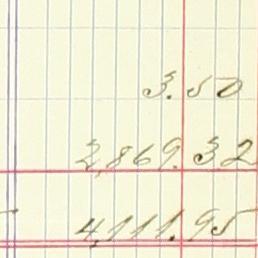 3.50
2,869.32
4,111.95